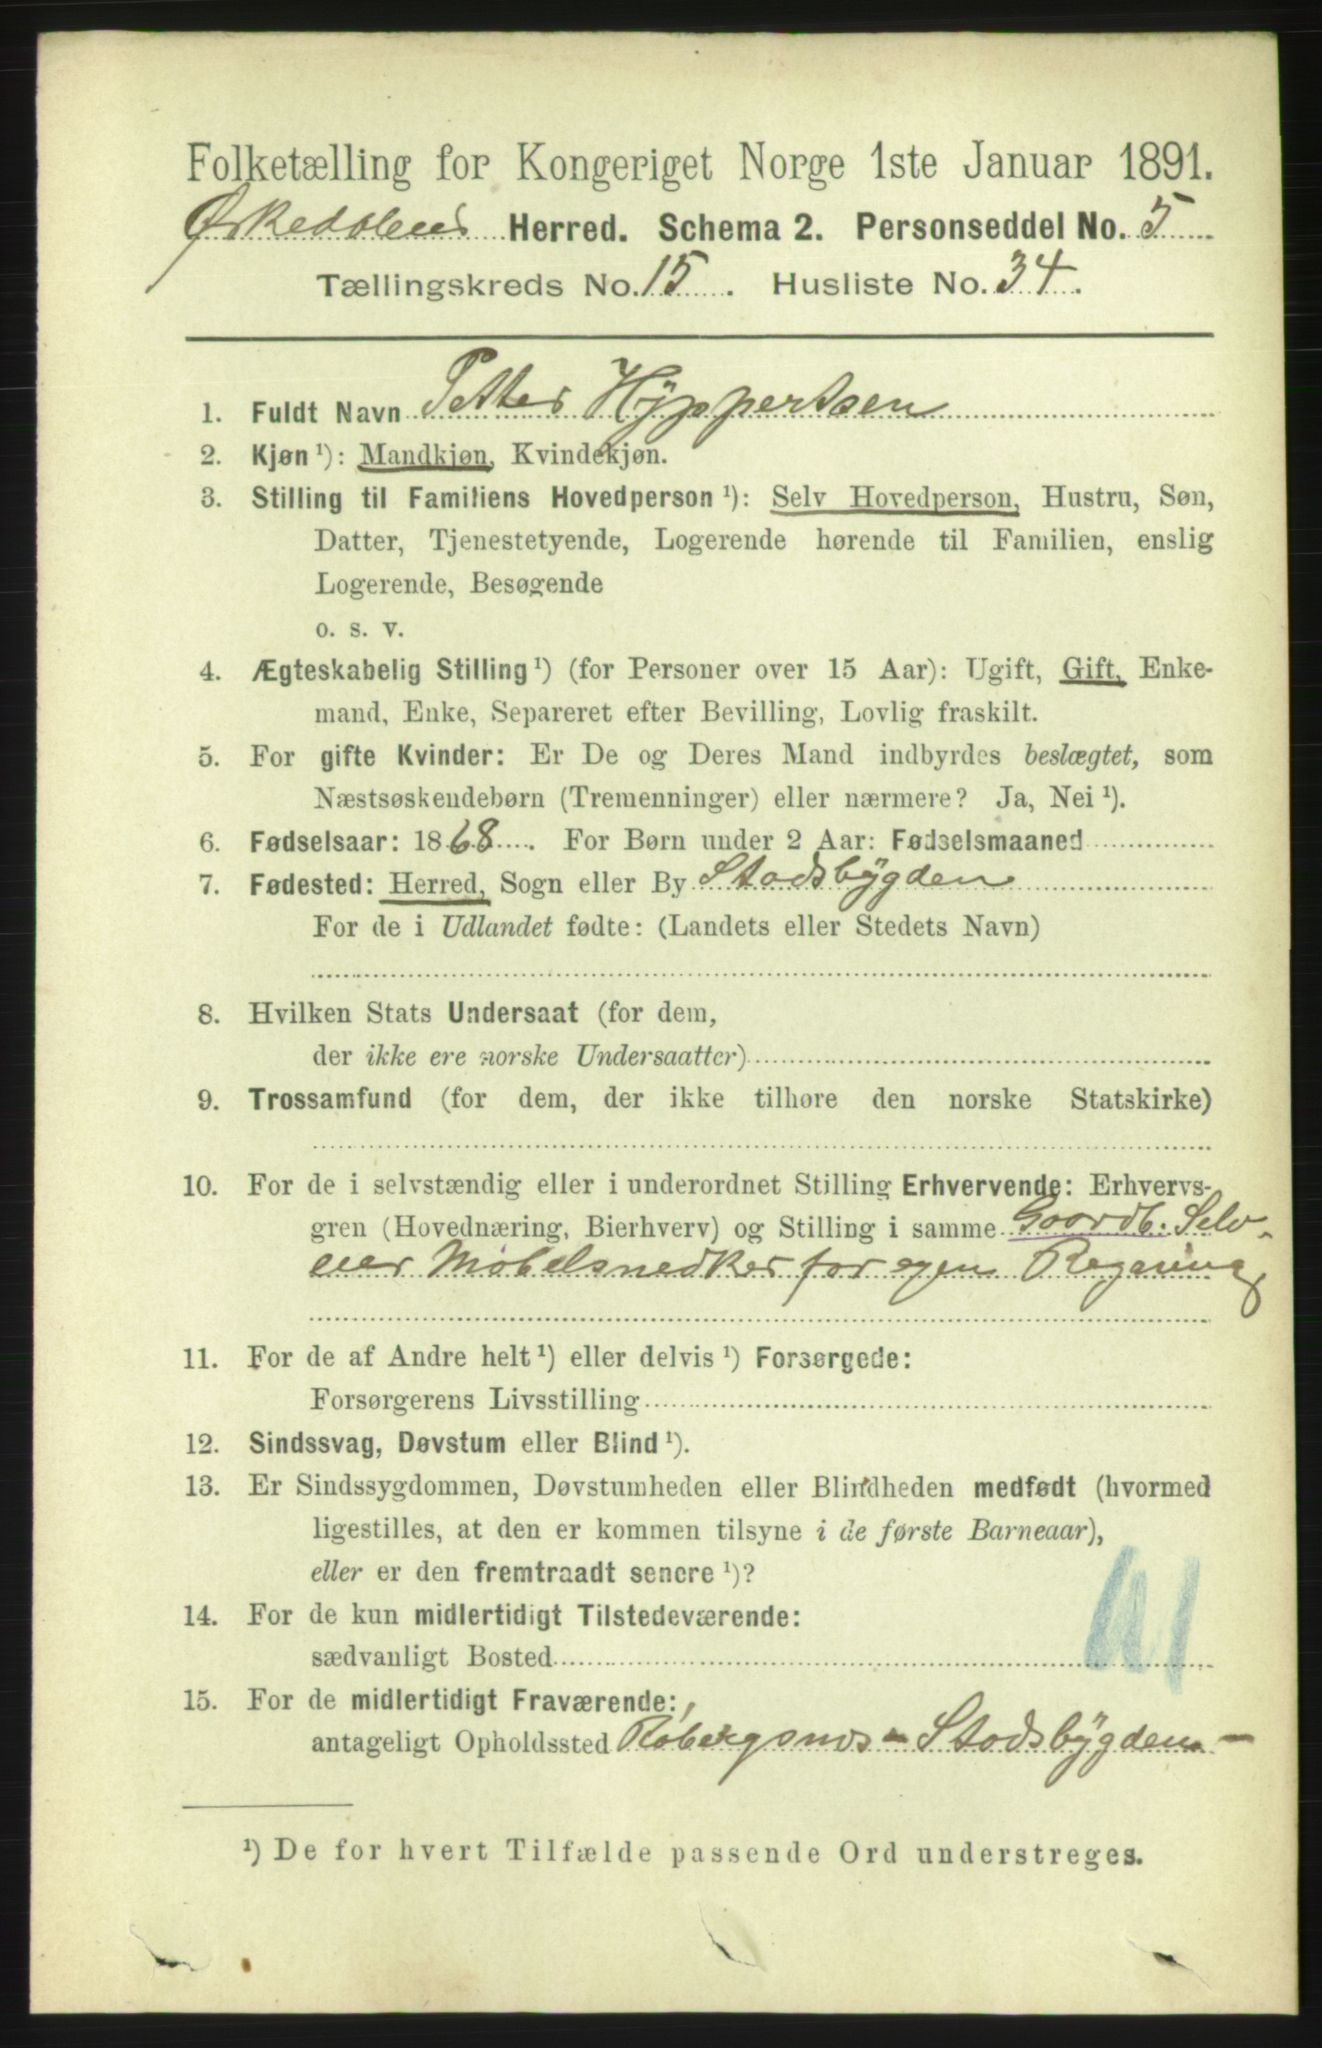 Folketælling for Kongeriget Norge 1ste Januar 1891.
Ørkedalens Herred. Schema 2. Personseddel No. 5
Tællingskreds No. 15. Husliste No. 34.
1. Fuldt Navn Petter Hÿppertsen
2. Kjøn ¹): Mandkjøn, Kvindekjøn.
3. Stilling til Familiens Hovedperson ¹): Selv Hovedperson, Hustru, Søn,
Datter, Tjenestetyende, Logerende hørende til Familien, enslig
Logerende, Besøgende
o. s. v.
4. Ægteskabelig Stilling ¹) (for Personer over 15 Aar): Ugift, Gift, Enke-
mand, Enke, Separeret efter Bevilling, Lovlig fraskilt.
5. For gifte Kvinder: Er De og Deres Mand indbyrdes beslægtet, som
Næstsøskendebørn (Tremenninger) eller nærmere? Ja, Nei ¹).
6. Fødselsaar: 1868. For Børn under 2 Aar: Fødselsmaaned
7. Fødested: Herred, Sogn eller By Stadsbÿgden
For de i Udlandet fødte: (Landets eller Stedets Navn)
8. Hvilken Stats Undersaat (for dem,
der ikke ere norske Undersaatter)
9. Trossamfund (for dem, der ikke tilhøre den norske Statskirke)
10. For de i selvstændig eller i underordnet Stilling Erhvervende: Erhvervs-
gren (Hovednæring, Bierhverv) og Stilling i samme Gaardb. Selv-
eier Møbelsnedker for egen Regning
11. For de af Andre helt ¹) eller delvis ¹) Forsørgede:
Forsørgerens Livsstilling
12. Sindssvag, Døvstum eller Blind ¹).
13. Er Sindssygdommen, Døvstumheden eller Blindheden medfødt (hvormed
ligestilles, at den er kommen tilsyne i de første Barneaar),
eller er den fremtraadt senere ¹)?
14. For de kun midlertidigt Tilstedeværende:
sædvanligt Bosted
15. For de midlertidigt Fraværende:
antageligt Opholdssted Røbergsnes - Stadsbÿgden -
¹) De for hvert Tilfælde passende Ord understreges.